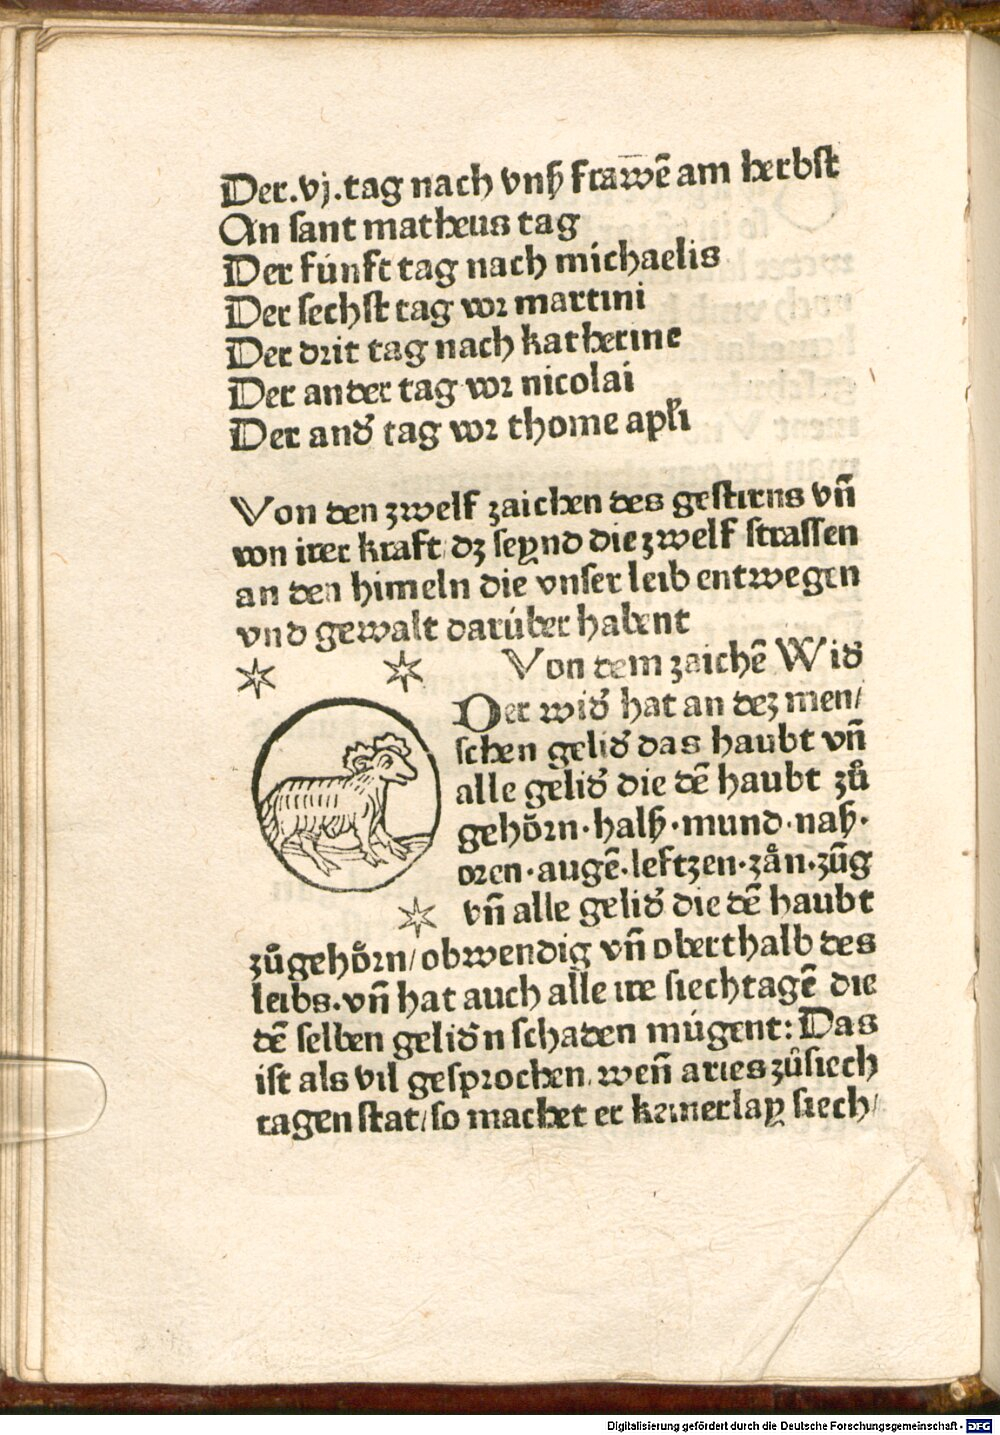 Der.vj.tag nach vnſß frawē am herbſt
An ſant matheus tag
Der fúnft tag nach michaelis
Der ſechſt tag vor martini
Der drit tag nach katherine
Der ander tag vor nicolai
Der andꝰ tag vor thome apłi

Von den zwelf zaichen des geſtirns vñ
von irer kraft/dz ſeynd die zwelf ſtraſſen
an den himeln die vnſer leib entwegen
vnd gewalt darúber habent
Von dem zaichē Widꝰ
Der widꝰ hat an dez men/
ſchen gelidꝰ das haubt vñ
alle gelidꝰ die dē haubt zů
gehoͤrn·halß·mund·naß·
oren·augē·leftzen·zaͤn·zūg
vñ alle gelidꝰ die dē haubt
zůgehoͤrn/obwendig vñ oberthalb des
leibs.vñ hat auch alle ire ſiechtagē die
dē ſelben gelidꝰn ſchaden múgent: Das
iſt als vil geſprochen.weñ aries zůſiech
tagen ſtat/ſo machet er keinerlay ſiech/
Digitalisierung gefördert durch die Deutsche Forschungsgemeinschaft - DFG